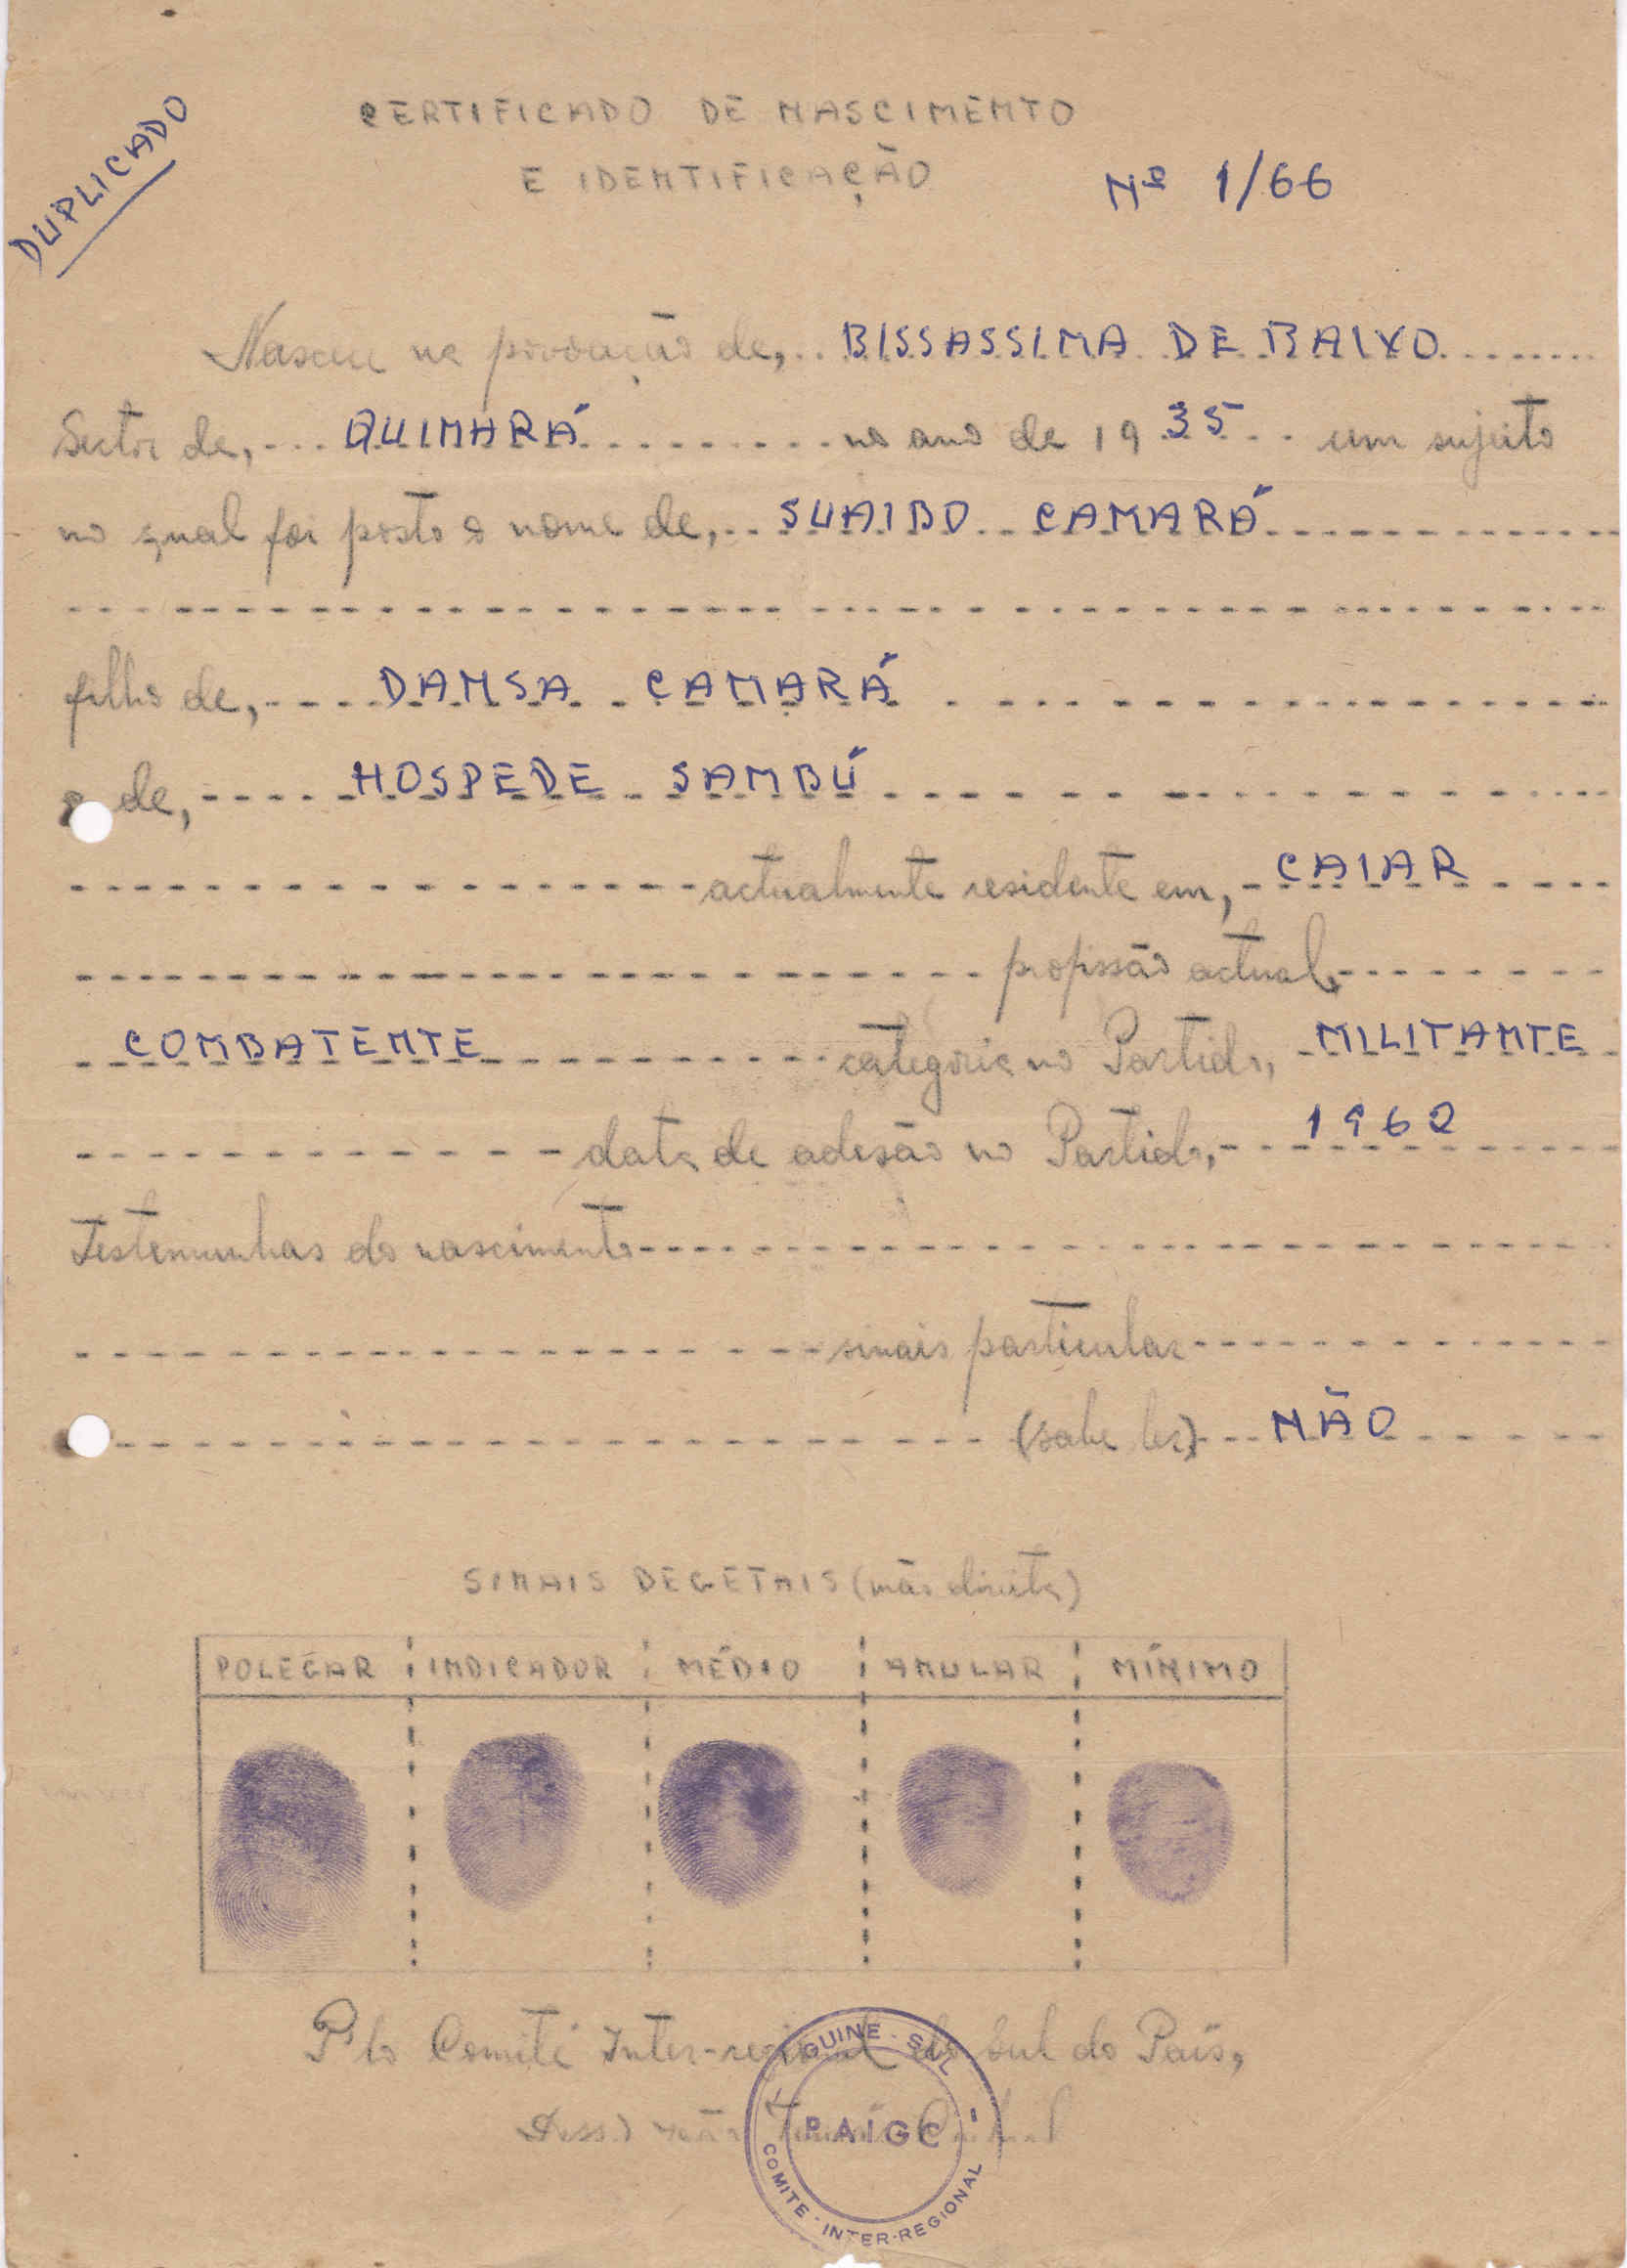 DUPLICADO
CERTIFICADO DE NASCIMENTO
E IDENTIFICAÇÃO
Nº 1/66
Nasceu na povoação de, BISSASSIMA DE BAIXO
Sector de, QUINARÁ no ano de 1935 um sujeito
no qual foi posto o nome de, SUAIBO CAMARÁ
filho de, DANSA CAMARÁ
e de, HOSPEDE SAMBÚ
actualmente residente em, CAIAR
profissão actual,
COMBATENTE categoria no Partido, MILITANTE
data de adesão no Partido, 1962
Testemunhas do nascimento
sinais particular
(sabe ler) NÃO
SINAIS DEGETAIS (mão direita)
POLEGAR INDICADOR MÉDIO ANULAR MÍNIMO
P'lo Comité Inter-regional do Sul do País,
GUINE - SUL
PAIGC
COMITE - INTER-REGIONAL